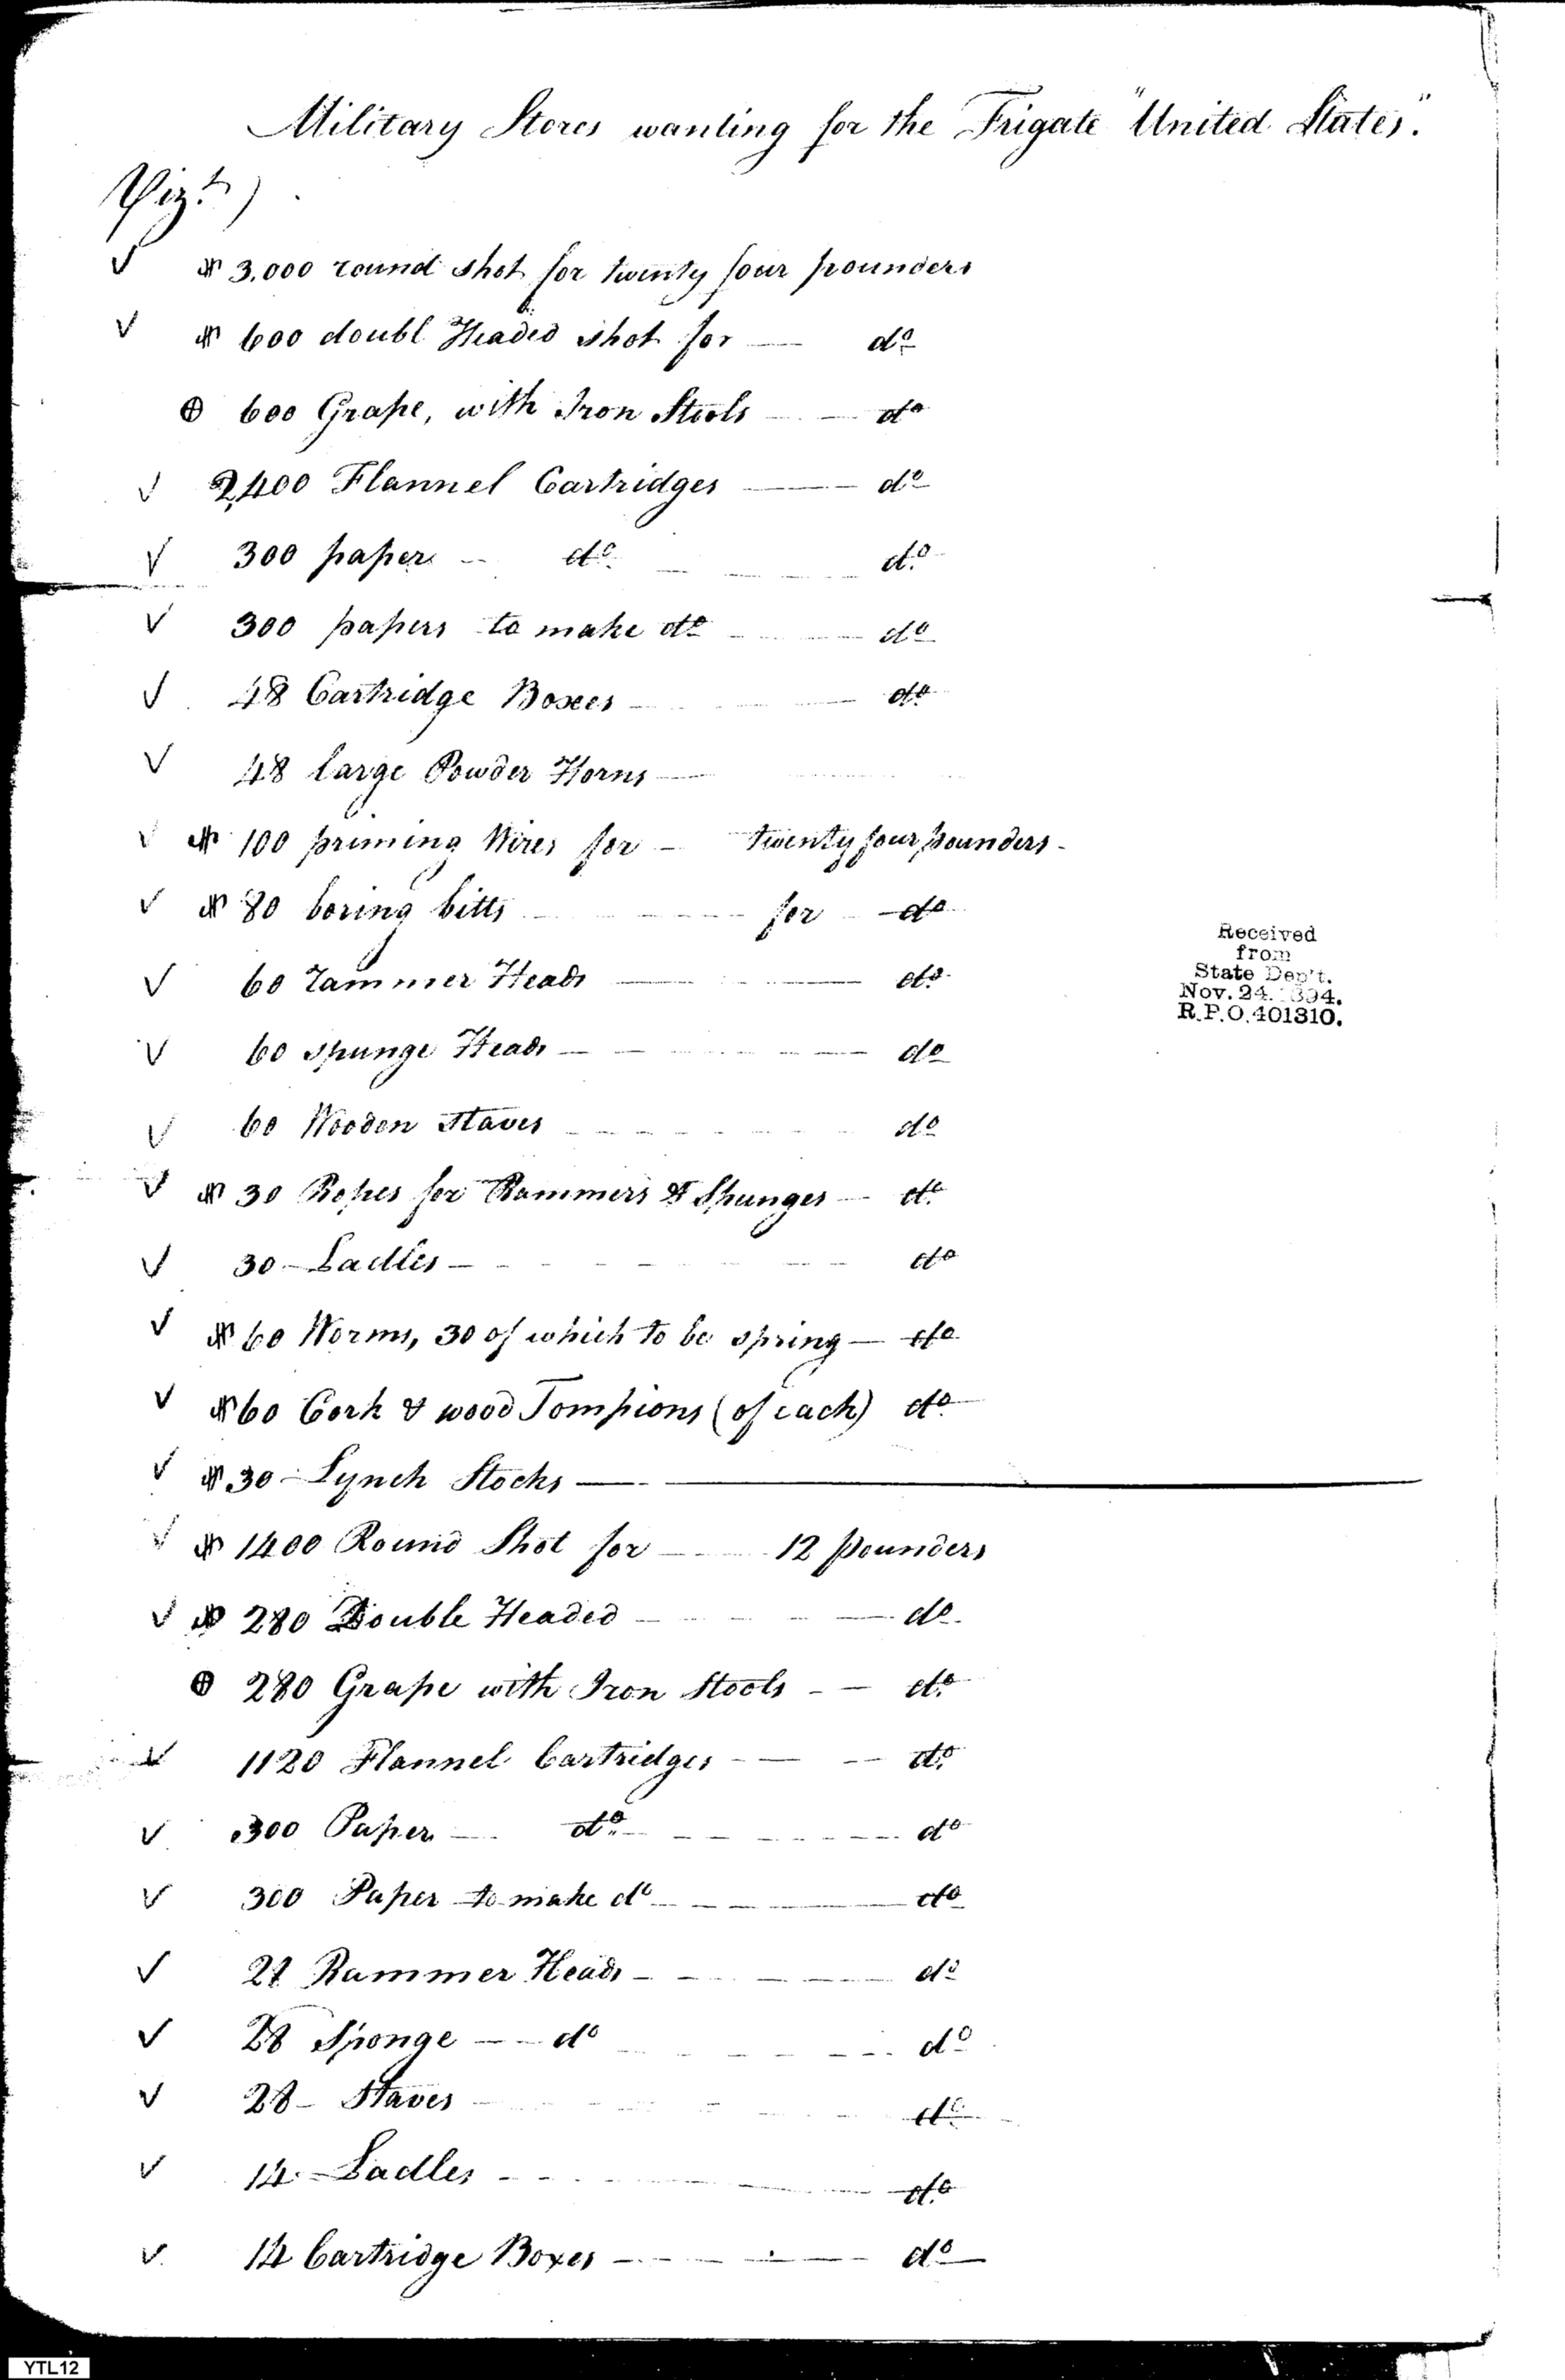 Military Stores wanting for the Frigate "United States".
Vizt)
✓ # 3.000 round shot for twenty four pounders
✓ # 600 doubl Headed shot for — do
⊕ 600 Grape, with Iron Stools — do
✓ 2,400 Flannel Cartridges — do
✓ 300 paper — do — do
✓ 300 papers to make do — do
✓ 48 Cartridge Boxes — do
✓ 48 large Powder Horns —
✓ # 100 priming Wires for — twenty four pounders -
✓ # 80 boring bitts — for — do
✓ 60 rammer Heads — do
✓ 60 spunge Heads — do
✓ 60 Wooden staves — do
✓ # 30 Ropes for Rammers & Spunges — do
✓ 30 - Ladles — do
✓ # 60 Worms, 30 of which to be spring — do
✓ # 60 Cork & wood Tompions (of each) do
✓ # 30 - Lynch Stocks —
✓ # 1400 Round Shot for — 12 pounders
✓ # 280 Double Headed — do
⊕ 280 Grape with Iron Stools — do
✓ 1120 Flannel Cartridges — do
✓ 300 Paper — do — do
✓ 300 Paper to make do — do
✓ 28 Rammer Heads — do
✓ 28 Sponge — do — do
✓ 28 - Staves — do
✓ 14 - Ladles — do
✓ 14 Cartridge Boxes — do
Received
from
State Dep't.
Nov. 24. 1894.
R.P.O. 401310.
YTL12